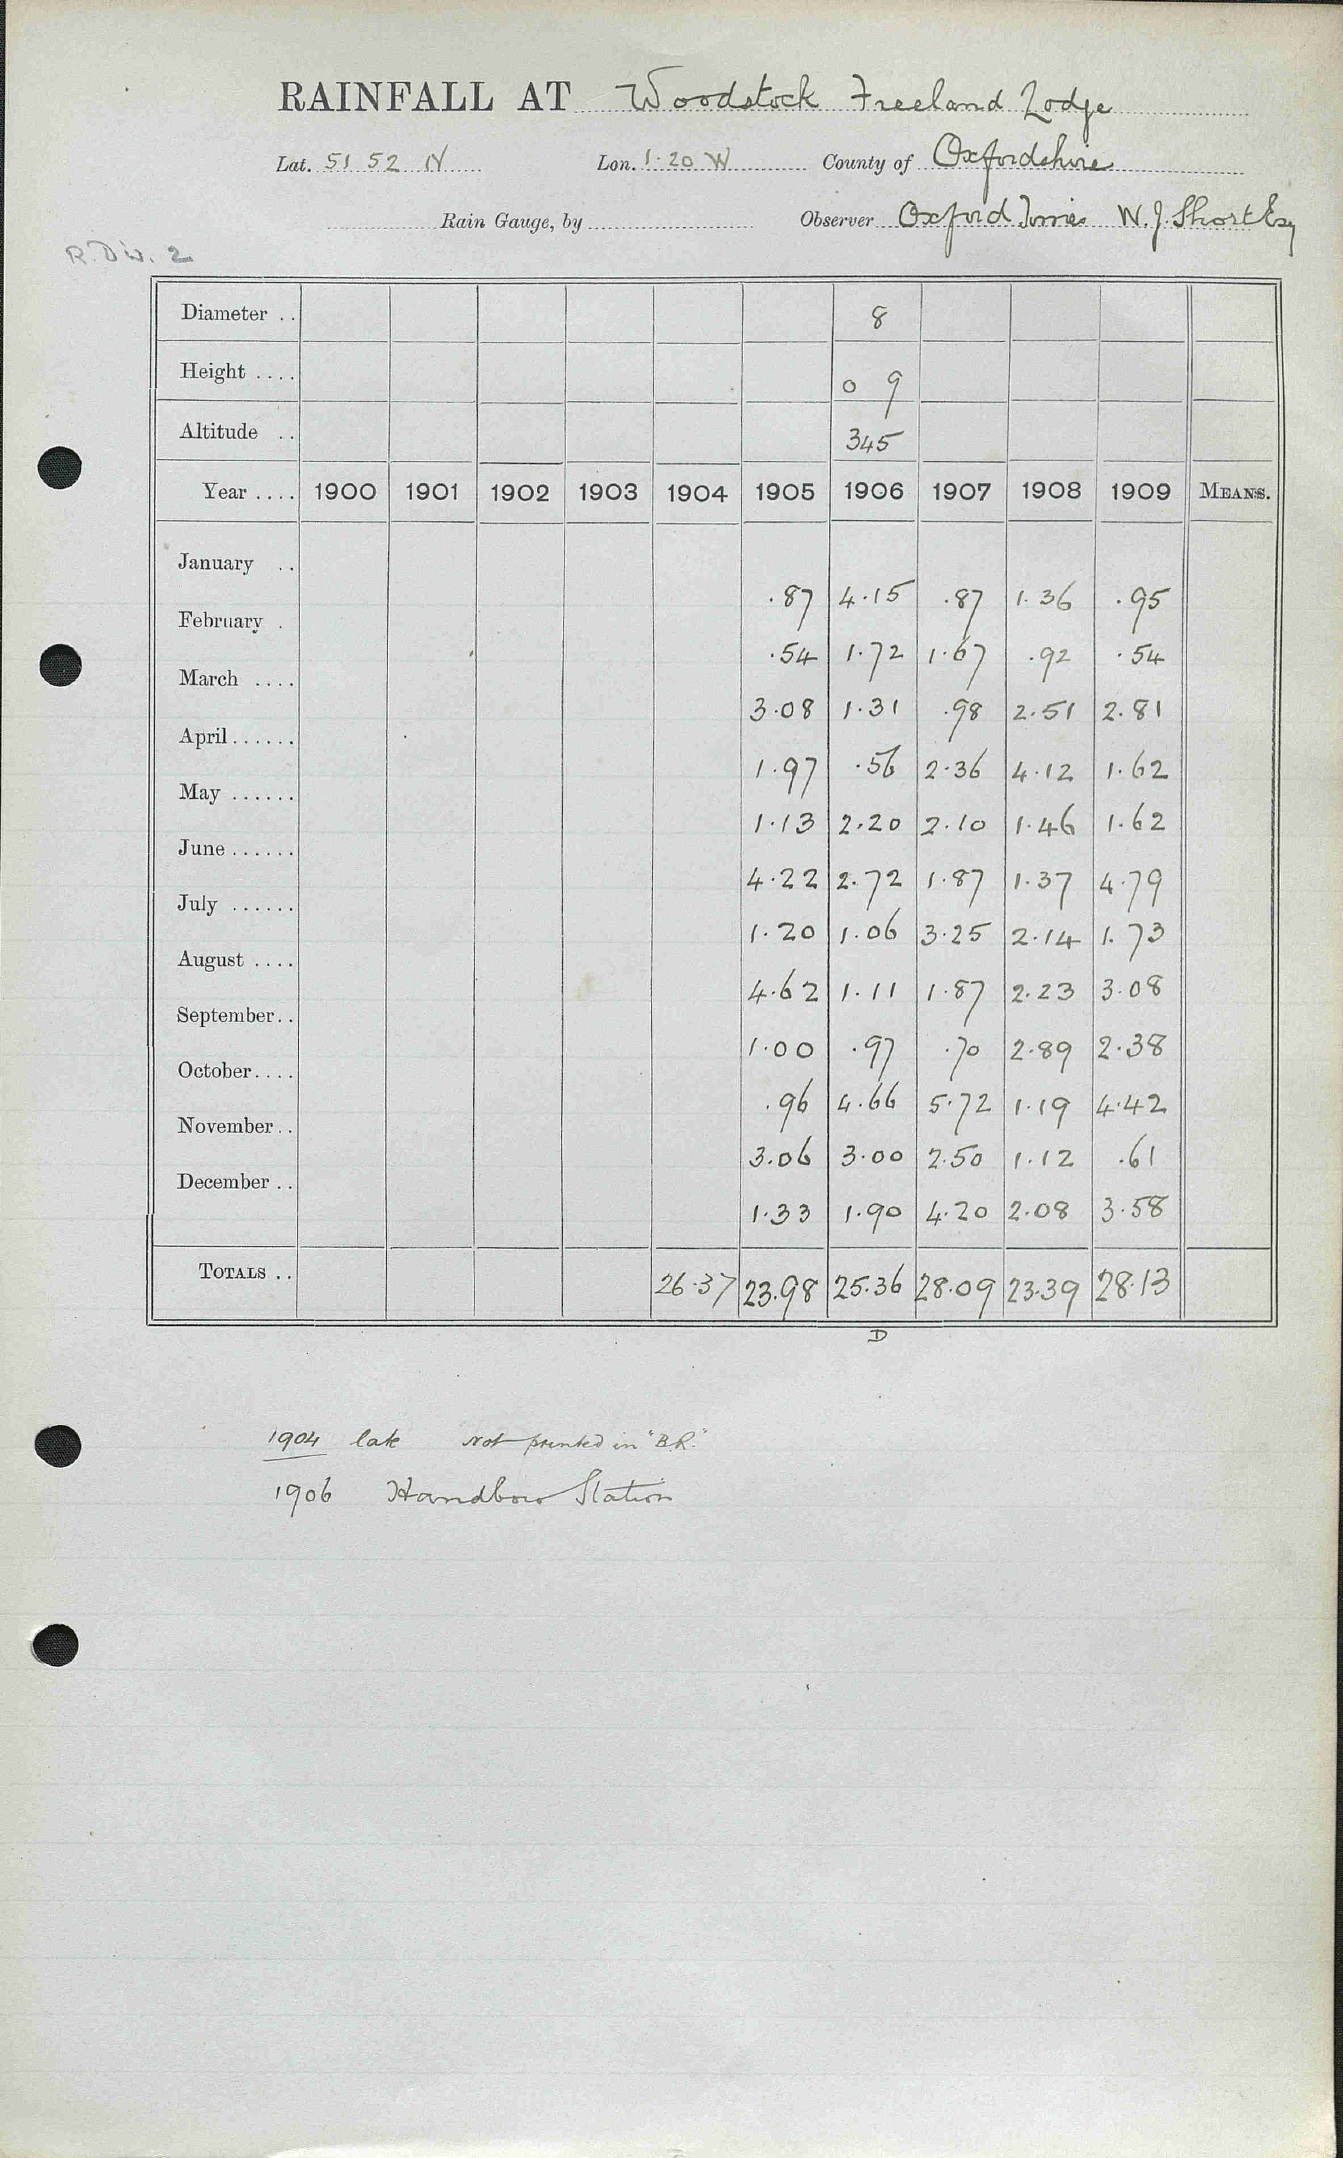 RAINFALL AT Woodstock Freeland Lodge
Lat. 51 52 N Lon. 1·20 W County of Oxfordshire
Rain Gauge, by Observer Oxford W. J. Short Esq
R. Div. 2
Diameter .. 8
Height .... 0 9
Altitude .. 345
Year .... 1900 1901 1902 1903 1904 1905 1906 1907 1908 1909 MEANS.
January .. ·87 4·15 ·87 1·36 ·95
February . ·54 1·72 1·67 ·92 ·54
March .... 3·08 1·31 ·98 2·51 2·81
April...... 1·97 ·56 2·36 4·12 1·62
May ...... 1·13 2·20 2·10 1·46 1·62
June...... 4·22 2·72 1·87 1·37 4·79
July ...... 1·20 1·06 3·25 2·14 1·73
August .... 4·62 1·11 1·87 2·23 3·08
September.. 1·00 ·97 ·70 2·89 2·38
October.... ·96 4·66 5·72 1·19 4·42
November.. 3·06 3·00 2·50 1·12 ·61
December .. 1·33 1·90 4·20 2·08 3·58
TOTALS .. 26·37 23·98 25·36 28·09 23·39 28·13
D
1904 late Not printed in "B.R."
1906 Handboro Station